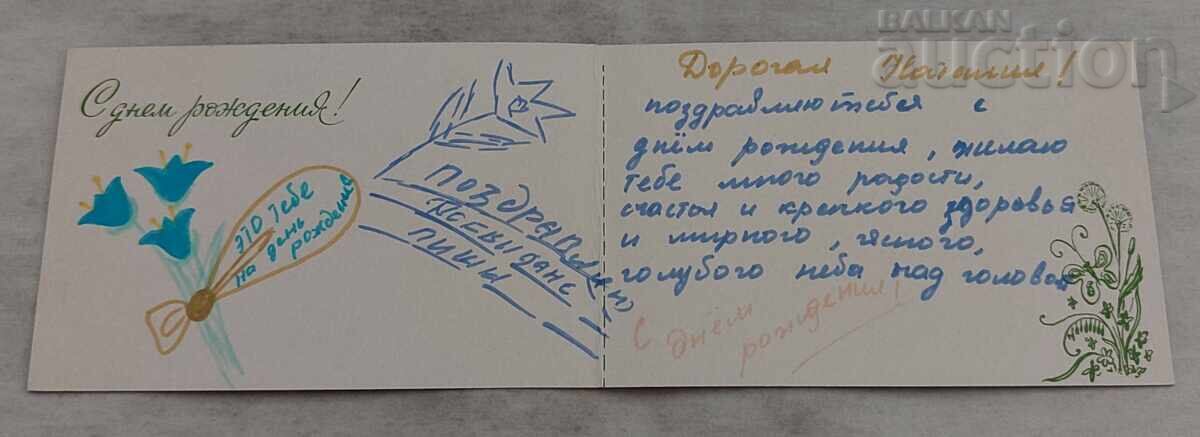 С днем рождения!
ЭТО Тебе
на день
рождение
ПОЗДРАВЛЯЮ
ПИШИ
Дорогая Наташия!
поздравляю тебея с
днём рождения, жилаю
тебе много радости,
счастья и крепкого здоровья
и мирного, ясного,
голубого неба над головой
С днём
рождения!
BALKAN
auction